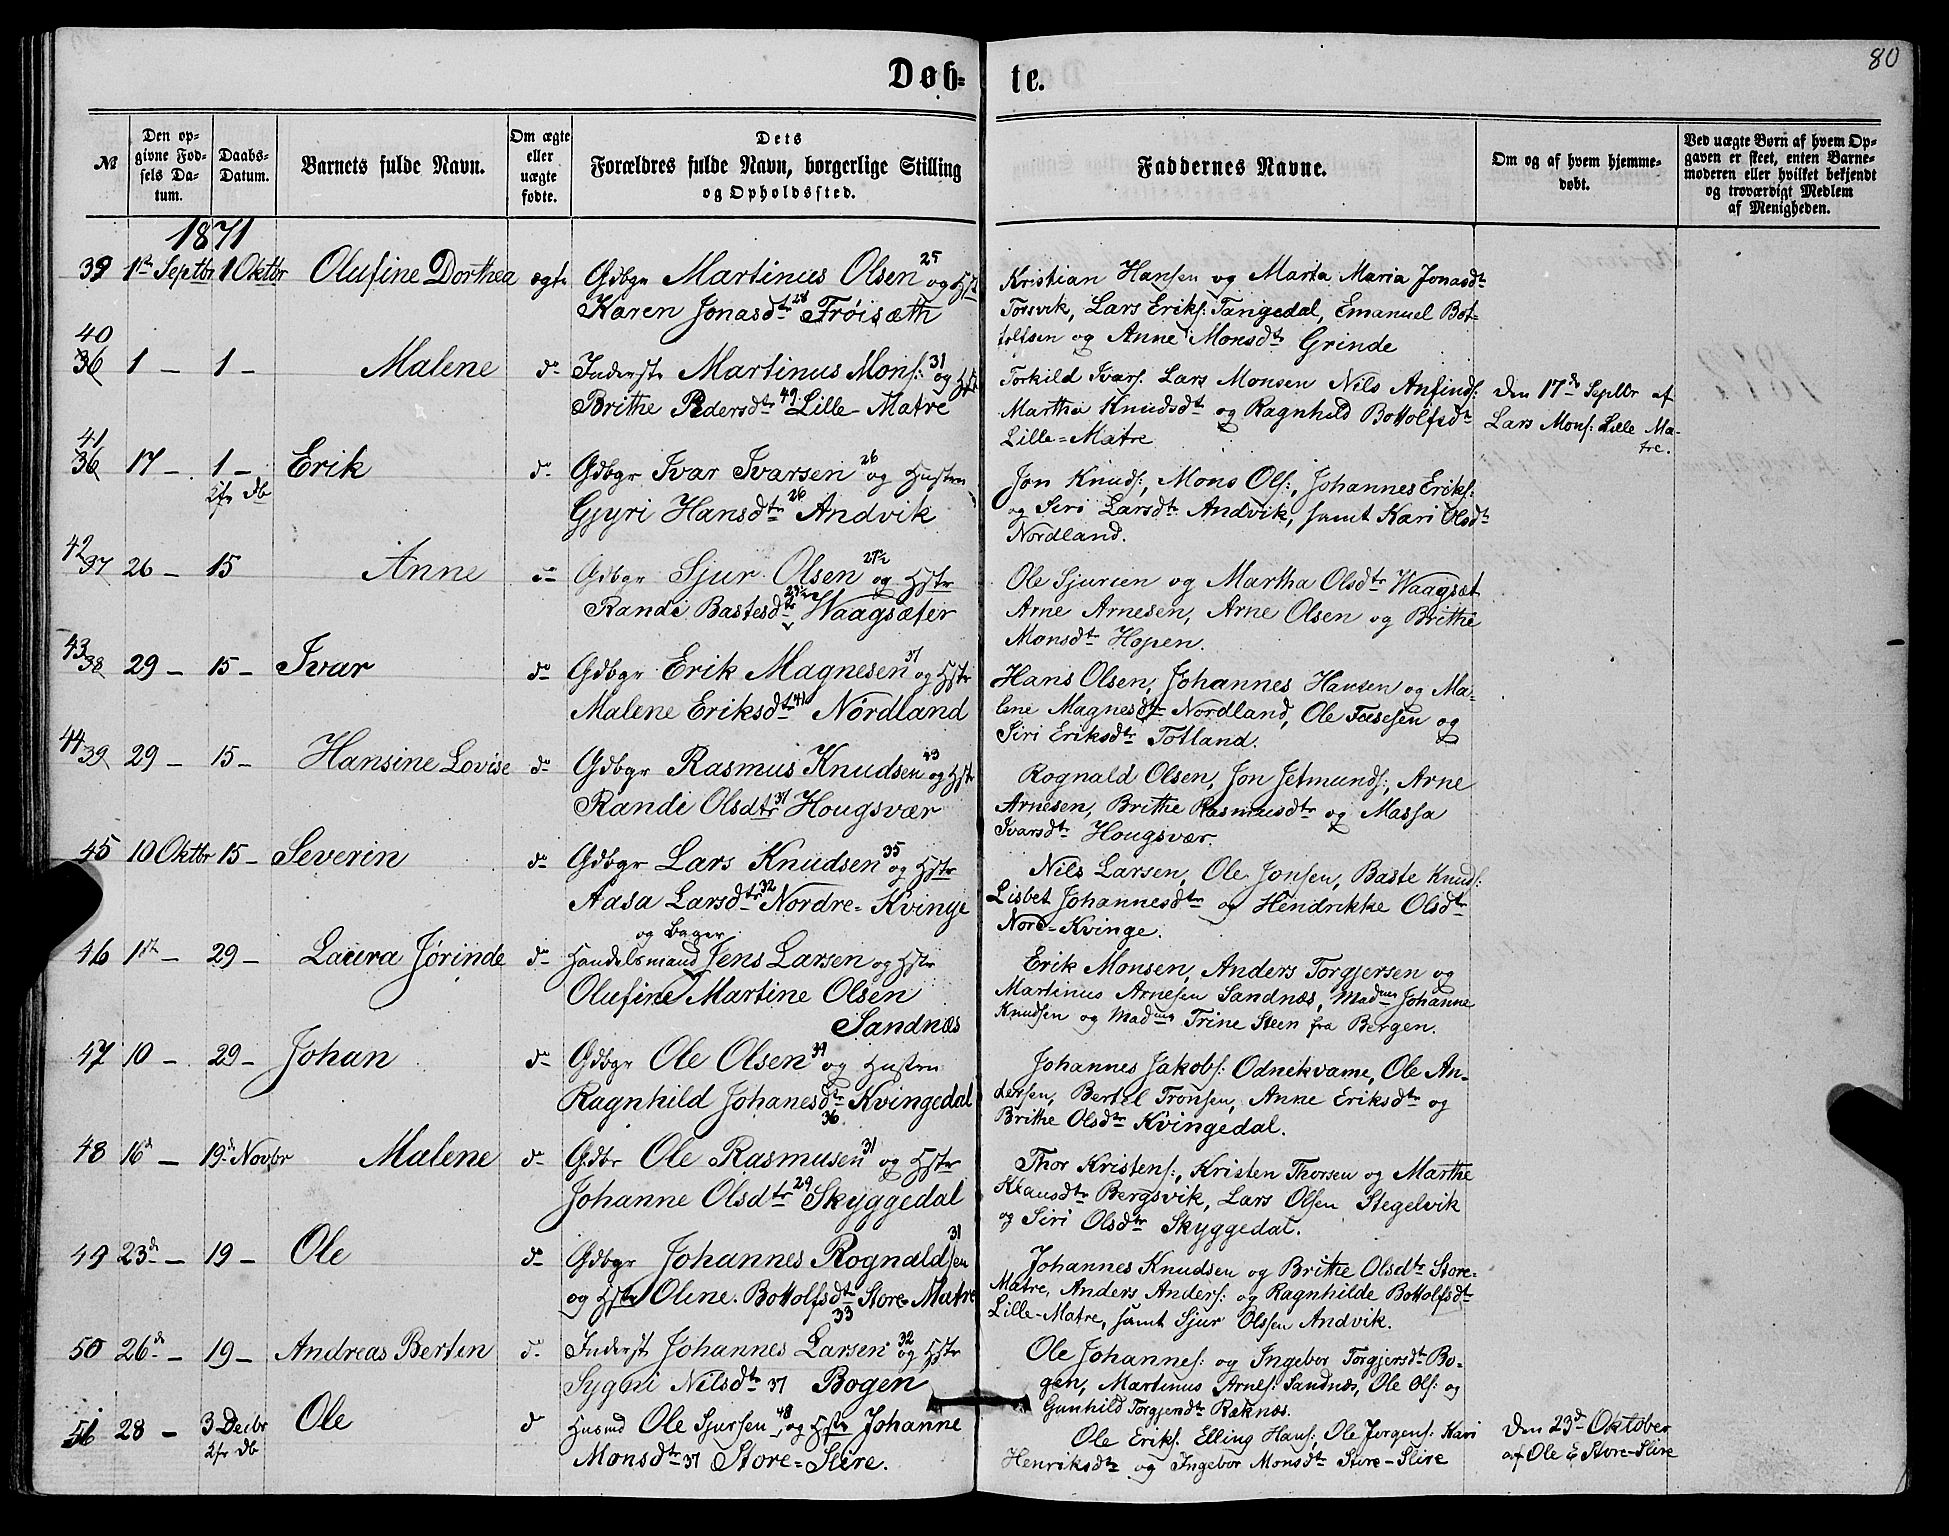 80
Døb- te.
№
Den op-
givne Fød-
sels Da-
tum.
Daabs-
Datum.
Barnets fulde Navn.
Om ægte
eller
uægte
fødte.
Dets
Forældres fulde Navn, borgerlige Stilling
og Opholdssted.
Faddernes Navne.
Om og af hvem hjemme-
døbt.
Ved uægte Børn af hvem Op-
gaven er skeet, enten Barne-
moderen eller hvilket bekjendt
og troværdigt Medlem
af Menigheden.
1871
39 1ste Septbr 1 Oktbr Olufine Dorthea ægte Gdbgr Martinus Olsen 25 og Hst
Karen Jonasdtr 28 Frøisæth
Kristian Hansen og Marta Maria Jonasdtr
Torsvik, Lars Eriks: Tangedal, Emanuel Bot-
tolfsen og Anne Monsdtr Grinde
40
36 1 - 1 - Malene do Inderste Martinus Mons: 31 og Hst
Brithe Pedersdtr 49 Lille-Matre
Torkild Ivars: Lars Monsen Nils Anfinds:
Martha Knudsdtr og Ragnhild Bottolfsdtr
Lille-Matre
Den 17de Septbr af
Lars Mons: Lille Ma-
tre.
41
36 17 - 1 - Erik do Gdbgr Ivar Ivarsen 26 og Hustru
Kfr Db
Gjyri Hansdtr 26 Andvik
Jon Knuds:, Mons Ols:, Johannes Eriks:
og Siri Larsdtr Andvik, samt Kari Olsdtr
Nordland.
42
37 26 - 15 Anne do Gdbgr Sjur Olsen 27½ og Hstr
Randi Bastesdtr Waagsæter
Ole Sjursen og Martha Olsdtr Waagsæt
Arne Arnesen, Arne Olsen og Brithe
Monsdtr Hopen.
43
38 29 - 15 - Ivar do Gdbgr Erik Magnesen 37 og Hstr
Malene Eriksdtr 41 Nordland
Hans Olsen, Johannes Hansen og Ma-
lene Magnesdtr Nordland, Ole og
Siri Eriksdtr Totland.
44
39 29 - 15 - Hansine Lovise do Gdbgr Rasmus Knudsen 43 og Hstr
Randi Olsdtr 37 Hougsvær
Rognald Olsen, Jon Jetmunds:, Arne
Arnesen, Brithe Rasmusdtr og Massa
Ivarsdtr Hougsvær.
45 10 Oktbr 15 - Severin do Gdbgr Lars Knudsen 35 og Hstr
Aasa Larsdtr 32 Nordre-Kvinge
Nils Larsen, Ole Jonsen, Baste Knuds:
Lisbet Johannesdtr og Hendrikke Olsdtr
Nord-Kvinge.
og Bager
46 1st - 29 - Laura Jørinde do Handelsmand Jens Larsen og Hstr
Olufine Martine Olsen
Sandnæs
Erik Monsen, Anders Torgjersen og
Martinus Arnesen Sandnæs, Madme Johanne
Knudsen og Madme Trine Steen fra Bergen.
47 10 - 29 - Johan do Gdbgr Ole Olsen 39 og Hustru
Ragnhild Johanesdtr Kvingedal
36
Johannes Jakobs: Odnekvame, Ole An-
dersen, Bertel Tronsen, Anne Eriksdtr og
Brithe Olsdtr Kvingedal.
48 16d - 19d Novbr Malene do Gdbr Ole Rasmusen 31 og Hstr
Johanne Olsdtr 29 Skyggedal
Thor Kristens:, Kristen Thorsen og Marthe
Klausdtr Bergsvik, Lars Olsen Stegelvik
og Siri Olsdtr Skyggedal.
49 23d - 19 - Ole do Gdbgr Johannes Rognaldsen 31
og Hstr Oline Bottolfsdtr Store-Matre
33
Johannes Knudsen og Brithe Olsdtr Store-
Matre, Anders Anders: og Ragnhilde Bottolfsdtr
Lille-Matre, samt Sjur Olsen Andvik.
50 26d - 19 - Andreas Bertin do Inderst Johannes Larsen 32 og Hstr
Sygni Nilsdtr 37 Bogen
Ole Johannes: og Ingebor Torgjersdtr Bo-
gen, Martinus Arnes: Sandnæs, Ole Ols: og
Gunhild Torgjersdtr Reknæs.
51 28 - 3 Decbr Ole do Husmd Ole Sjursen 48 og Hstr Johanne
Kfr Db
Monsdtr 37 Store-Slire.
Ole Eriks: Elling Hans:, Ole Jørgens: Kari
Henriksdtr og Ingebor Monsdtr Store-Slire
Den 23d Oktober
af Ole E Store-Slire